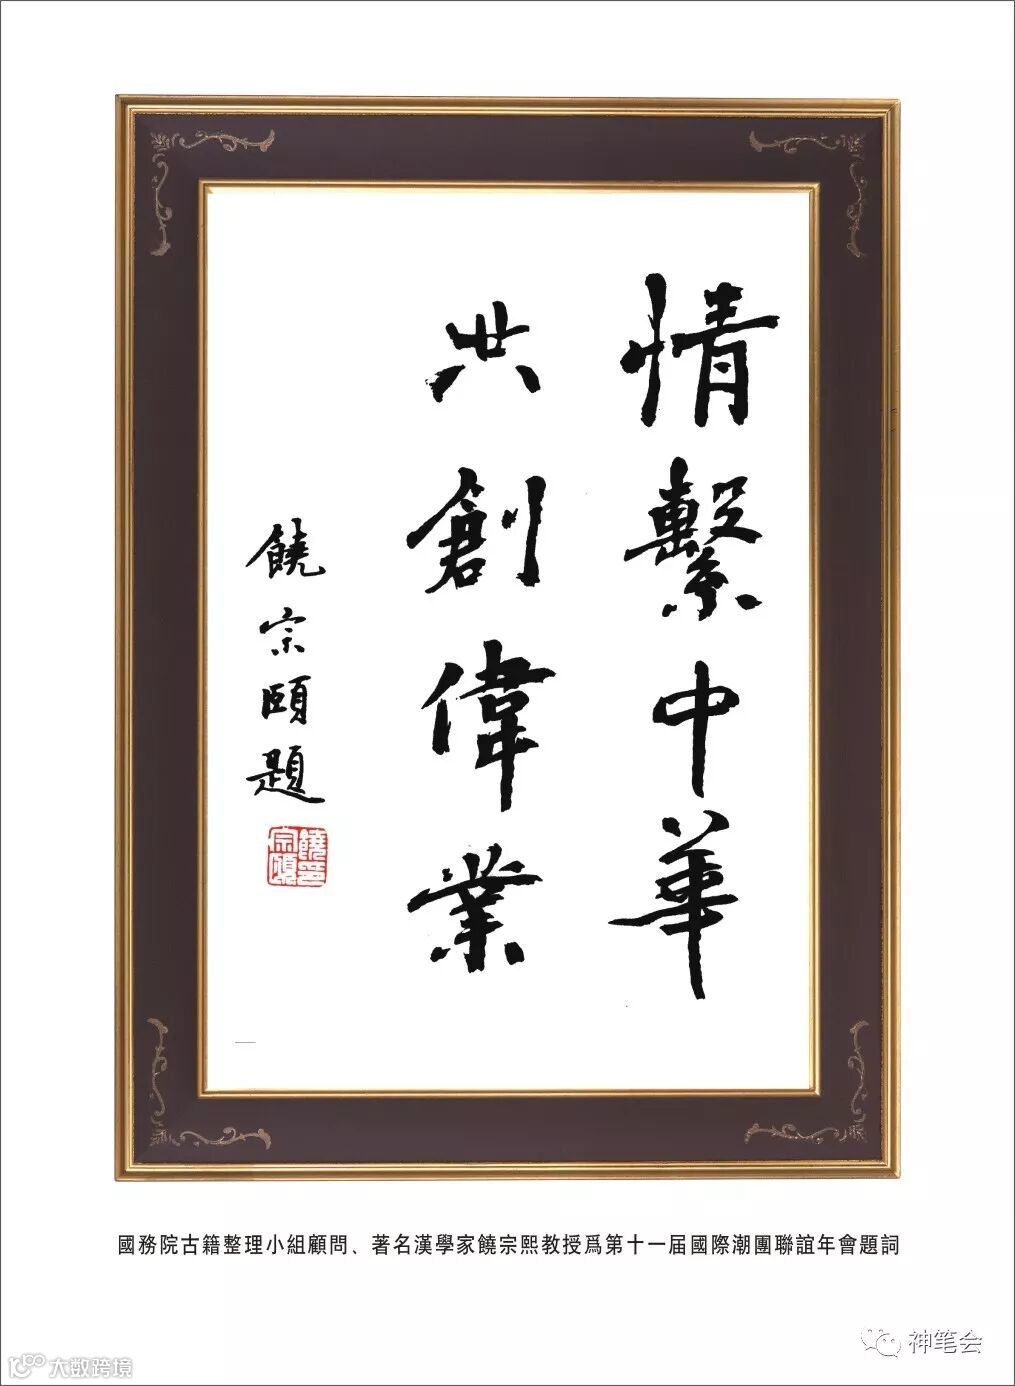 情繫中華
共創偉業
饒宗頤題
饒宗頤印
國務院古籍整理小組顧問、著名漢學家饒宗熙教授爲第十一届國際潮團聯誼年會題詞
神笔会
大数跨境